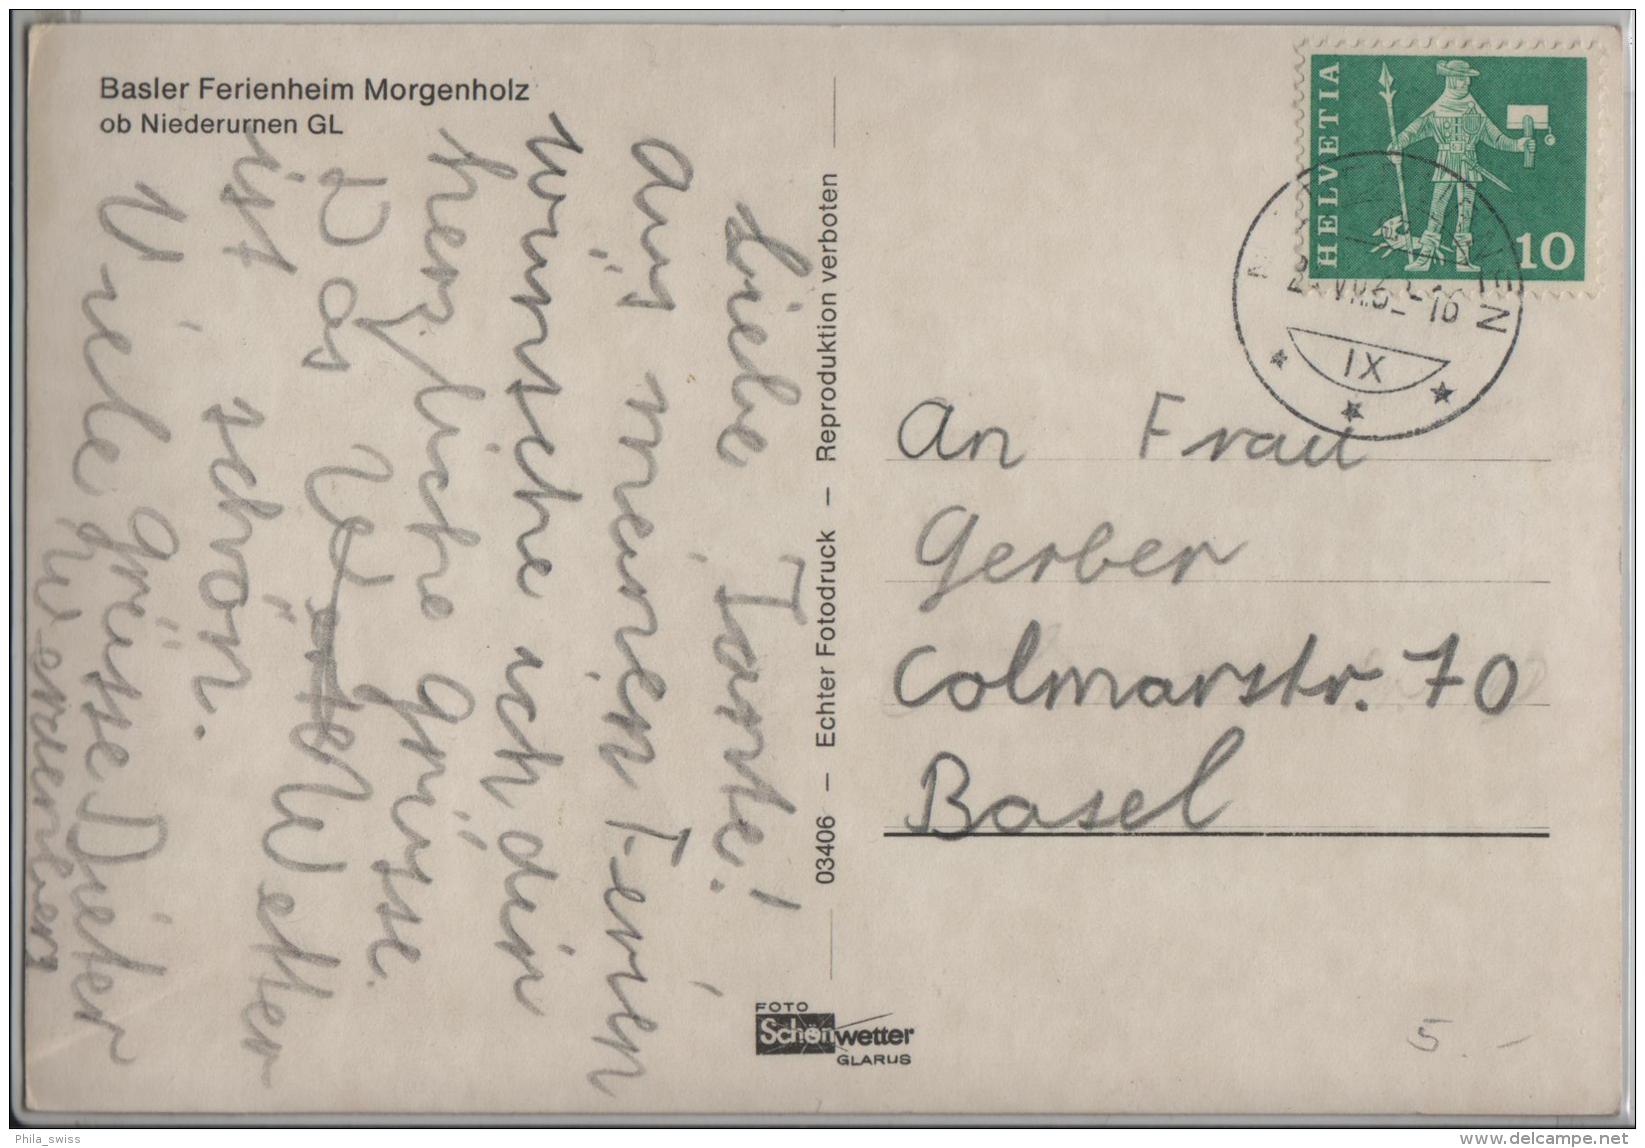 Basler Ferienheim Morgenholz
ob Niederurnen GL
Liebe Tante!
Aus meinen Ferien
wünsche ich dir
herzliche Grüsse.
Das Wetter
ist schön.
Viele Grüsse Dieter
Werdenberg
03406 – Echter Fotodruck – Reproduktion verboten
FOTO
Schönwetter
GLARUS
HELVETIA
10
IX
An Frau
Gerber
Colmarstr. 70
Basel
5.-
Phila_swiss
delcampe.net